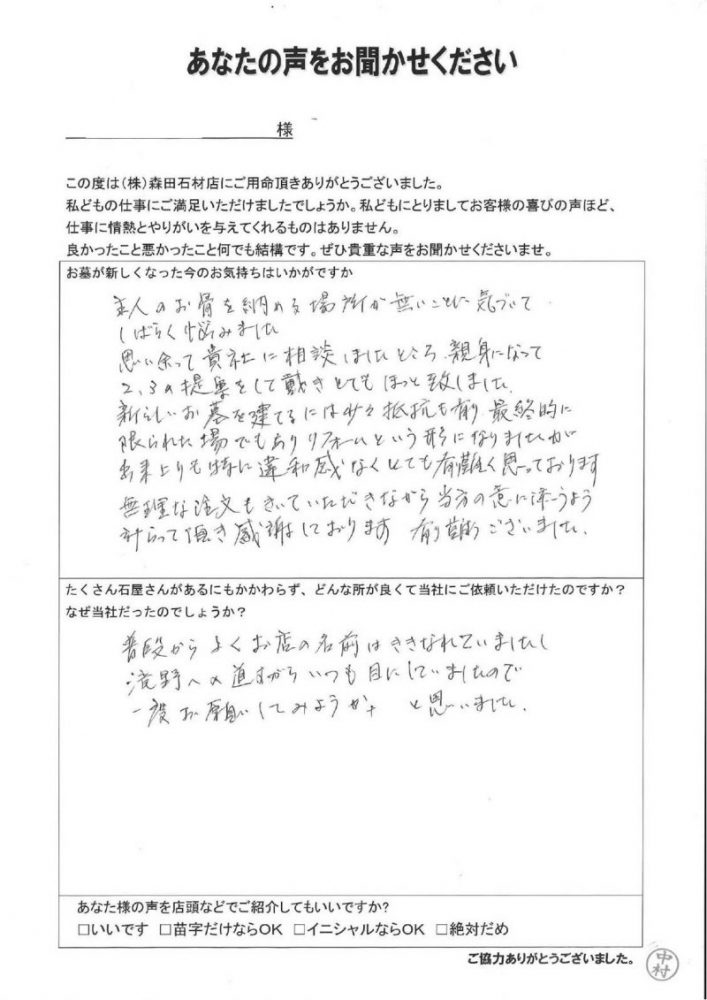 あなたの声をお聞かせください
様
この度は(株)森田石材店にご用命頂きありがとうございました。
私どもの仕事にご満足いただけましたでしょうか。私どもにとりましてお客様の喜びの声ほど、
仕事に情熱とやりがいを与えてくれるものはありません。
良かったこと悪かったこと何でも結構です。ぜひ貴重な声をお聞かせくださいませ。
お墓が新しくなった今のお気持ちはいかがですか
主人のお骨を納める場所が無いことに気づいて
しばらく悩みました
思い余って貴社に相談しましたところ、親身になって
2、3の提案をして戴きとてもほっと致しました。
新らしいお墓を建てるには少々抵抗も有り 最終的に
限られた場でもありリフォームという形になりましたが
出来上りも特に違和感なくとても有難く思っております
無理な注文もきいていただきながら当方の意に添うよう
計らって頂き感謝しております 有難うございました。
たくさん石屋さんがあるにもかかわらず、どんな所が良くて当社にご依頼いただけたのですか?
なぜ当社だったのでしょうか?
普段からよくお店の名前はききなれていましたし
滝野への道すがらいつも目にしていましたので
一度お願いしてみようか、と思いました。
あなた様の声を店頭などでご紹介してもいいですか?
□いいです □苗字だけならOK □イニシャルならOK □絶対だめ
ご協力ありがとうございました。
中村